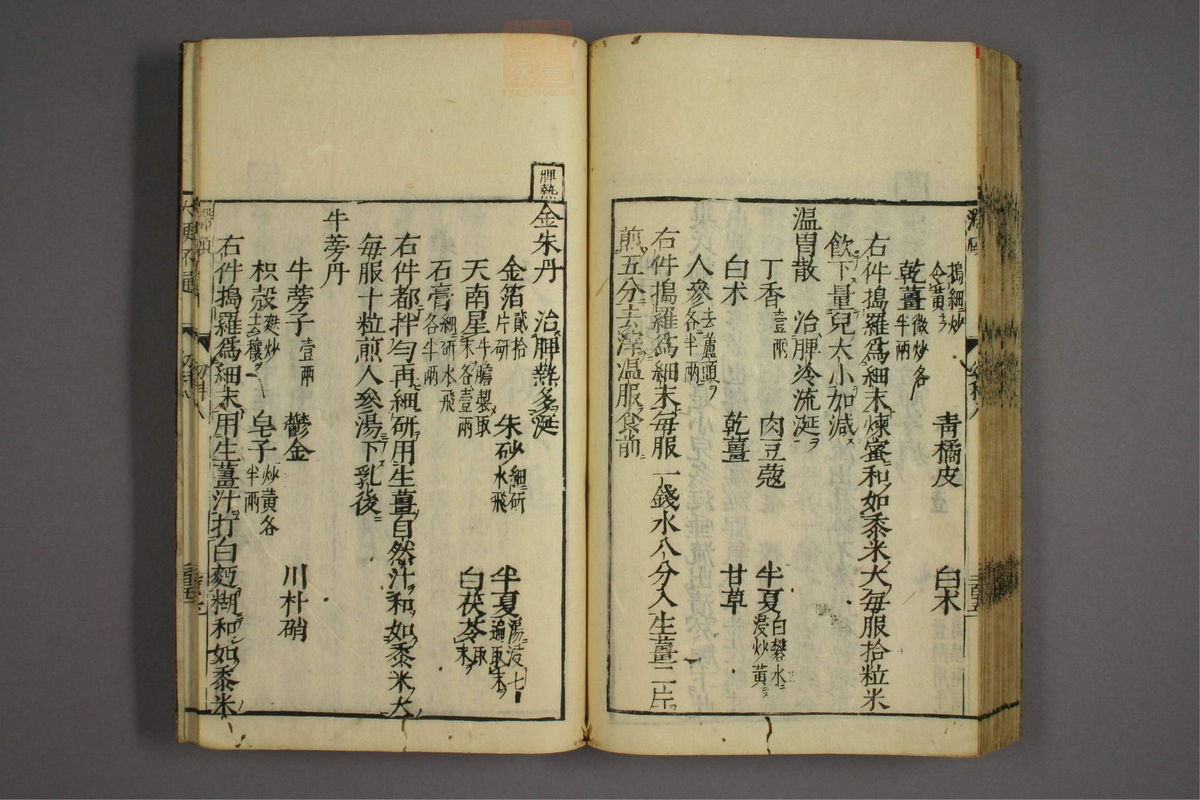 搗細炒令黃
乾薑微炒各半兩 青橘皮 白朮
右件搗羅爲細末煉蜜和如黍米大每服拾粒米
飲下量兒大小加減
温胃散 治脾冷流涎
丁香壹兩 肉豆蔻 半夏白礬水浸炒黃
白朮 乾薑 甘草
人參去蘆頭各半兩
右件搗羅爲細末每服一錢水八分入生薑二片
煎五分去滓温服食前
脾熱
金朱丹 治脾熱多涎
金箔貳拾片研 朱砂細研水飛 半夏湯浸七遍取末
天南星牛膽製取末各壹兩 白茯苓取末
石膏細研水飛各半兩
右件都拌勻再細研用生薑自然汁和如黍米大
每服十粒煎人參湯下乳後
牛蒡丹
牛蒡子壹兩 鬱金 川朴硝
枳殼麩炒去穰 皂子炒黃各半兩
右件搗羅爲細末用生薑汁打白麪糊和如黍米